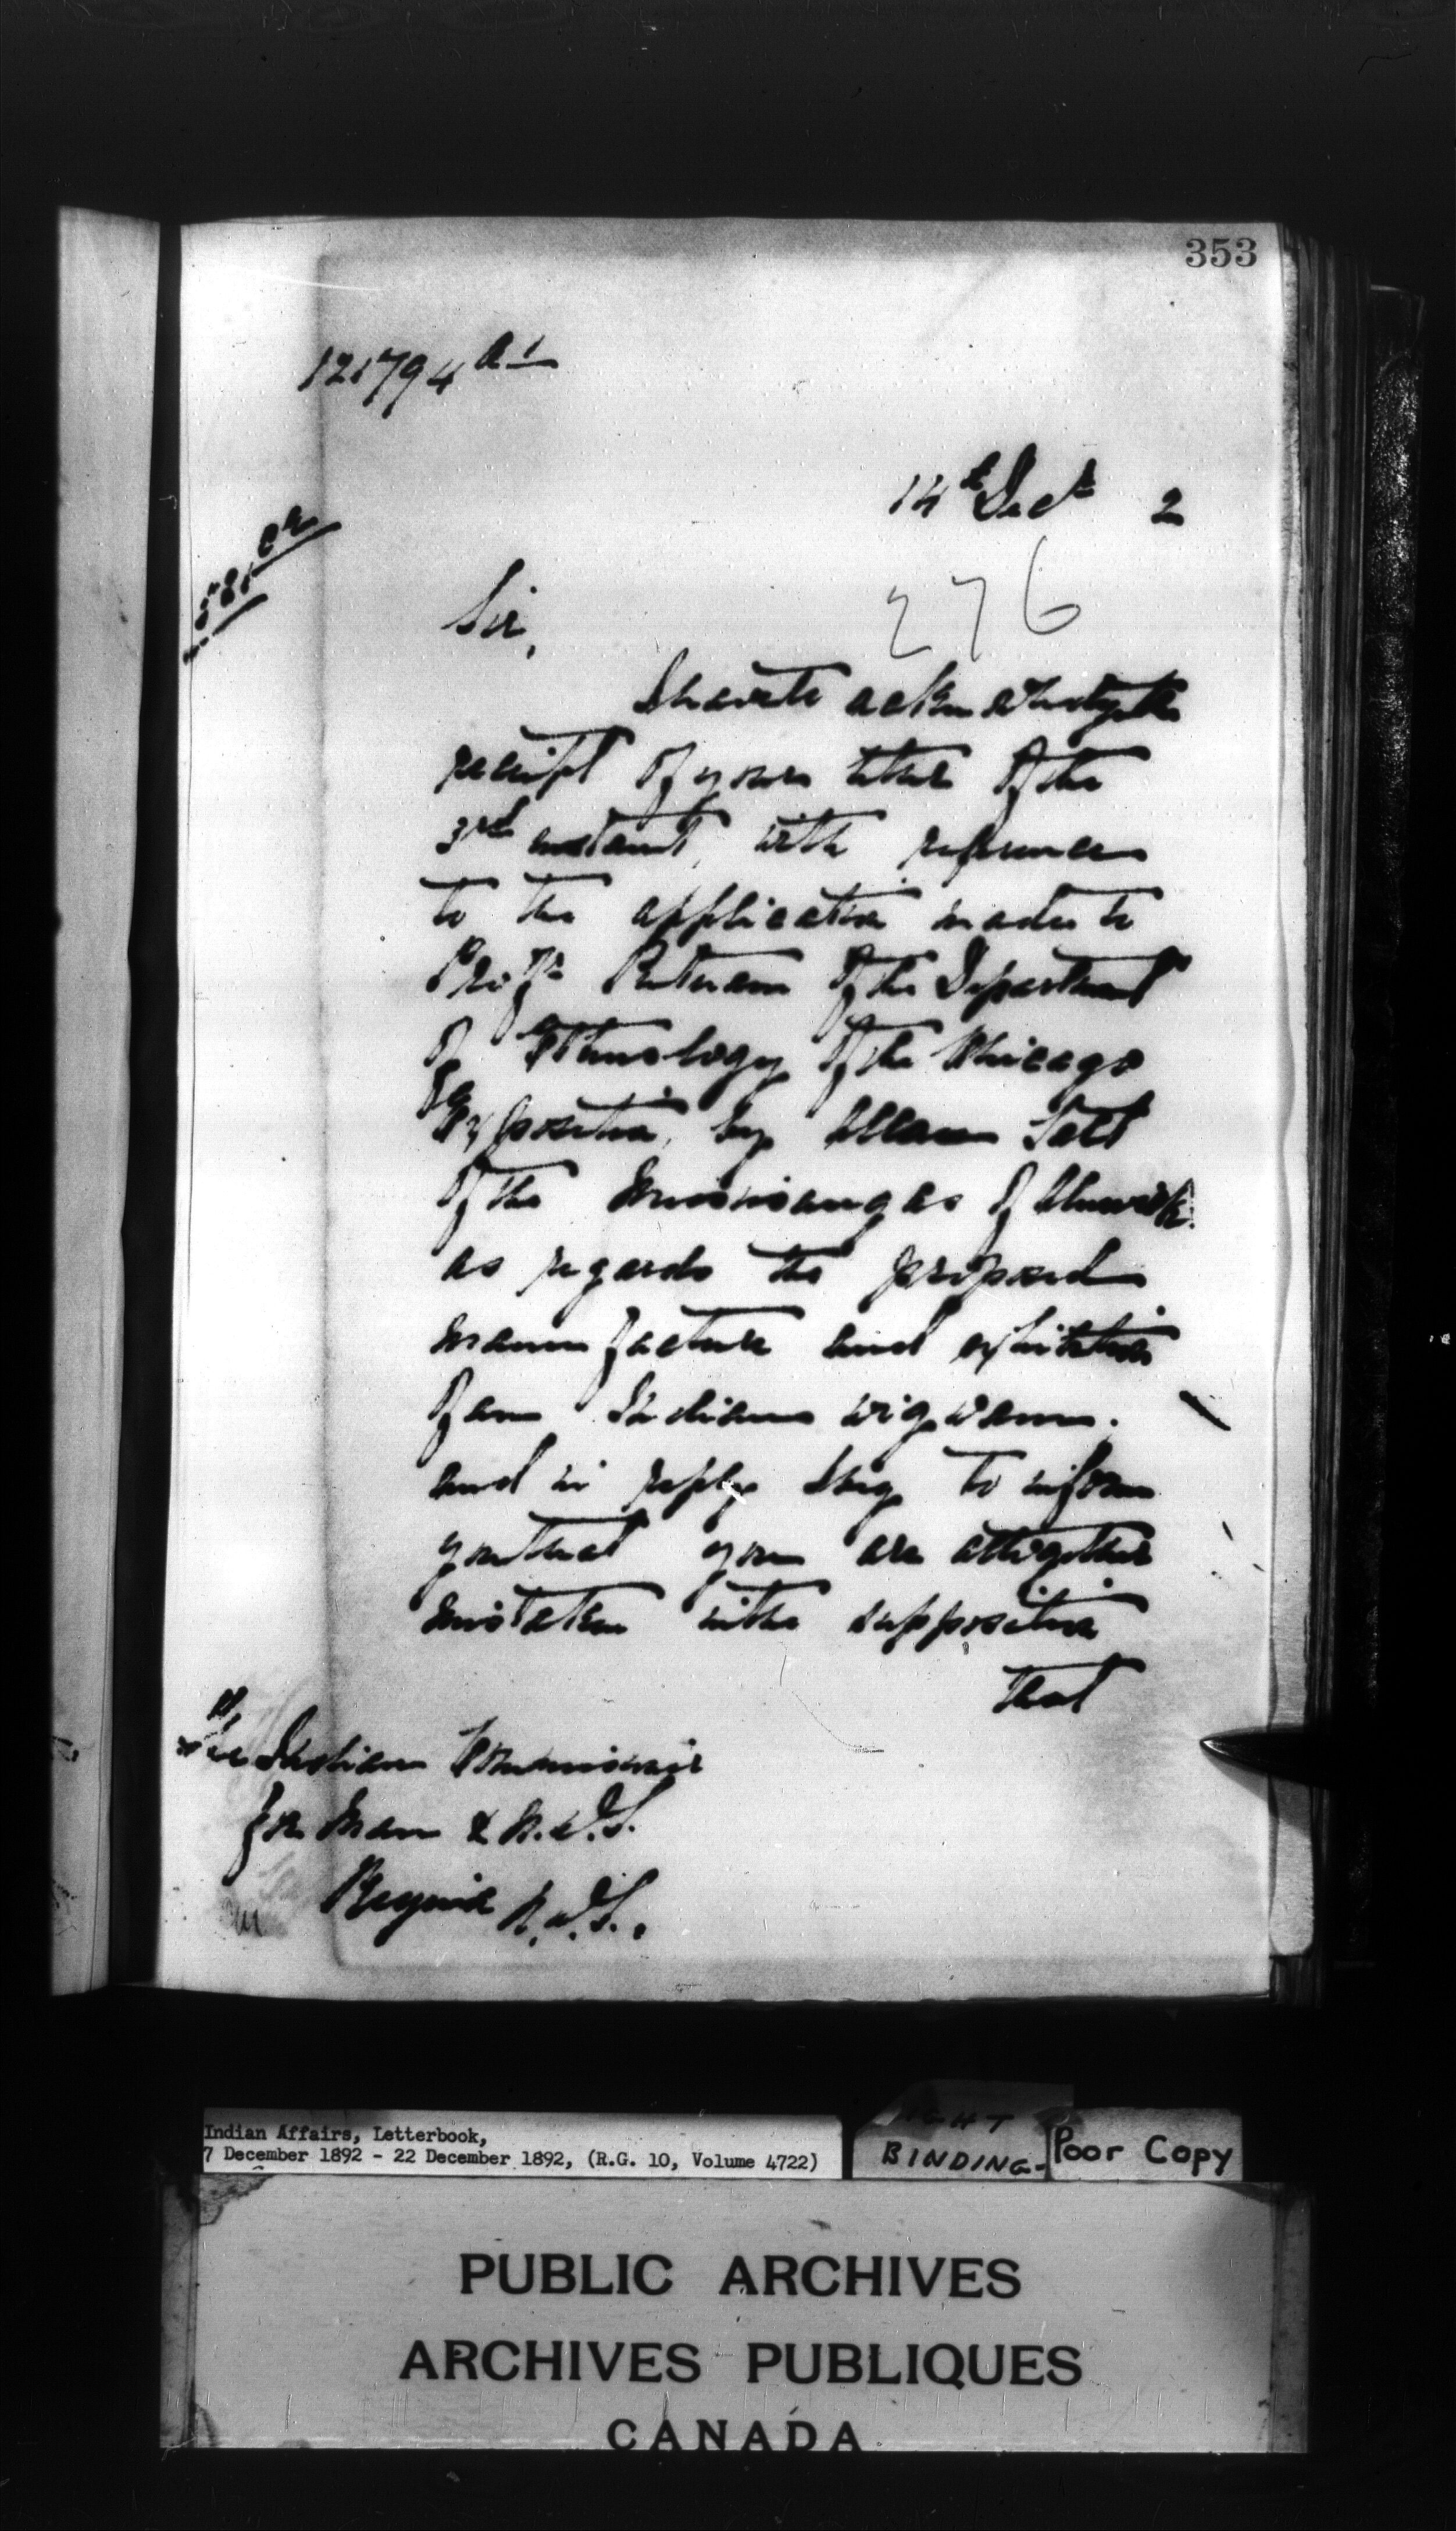 353
121794
14th Decr 2
276
Sir,
I have to acknowledge the
receipt of your letter of the
3rd instant, with reference
to the application made to
Profr Putnam of the Department
of Ethnology of the Chicago
Exposition, by Allan Salt
of the Mississaugas of Alnwick
as regards the proposed
manufacture and exhibition
of an Indian wigwam.
and in reply I beg to inform
you that you are altogether
mistaken in the supposition
that
The Indian Commissioner
for Man & N.W.T.
Regina N.W.T.
Indian Affairs, Letterbook,
7 December 1892 - 22 December 1892, (R.G. 10, Volume 4722)
BINDING-
Poor Copy
PUBLIC ARCHIVES
ARCHIVES PUBLIQUES
CANADA